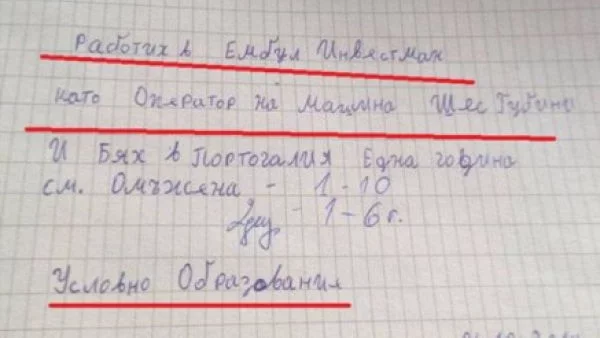 Работих в Ембул Инвестман
като Оператор на машина Шес Губини
И Бях в Портогалия Една година
см. Омъжена - 1-10
2дец. - 1-6 г.
Условно Образования